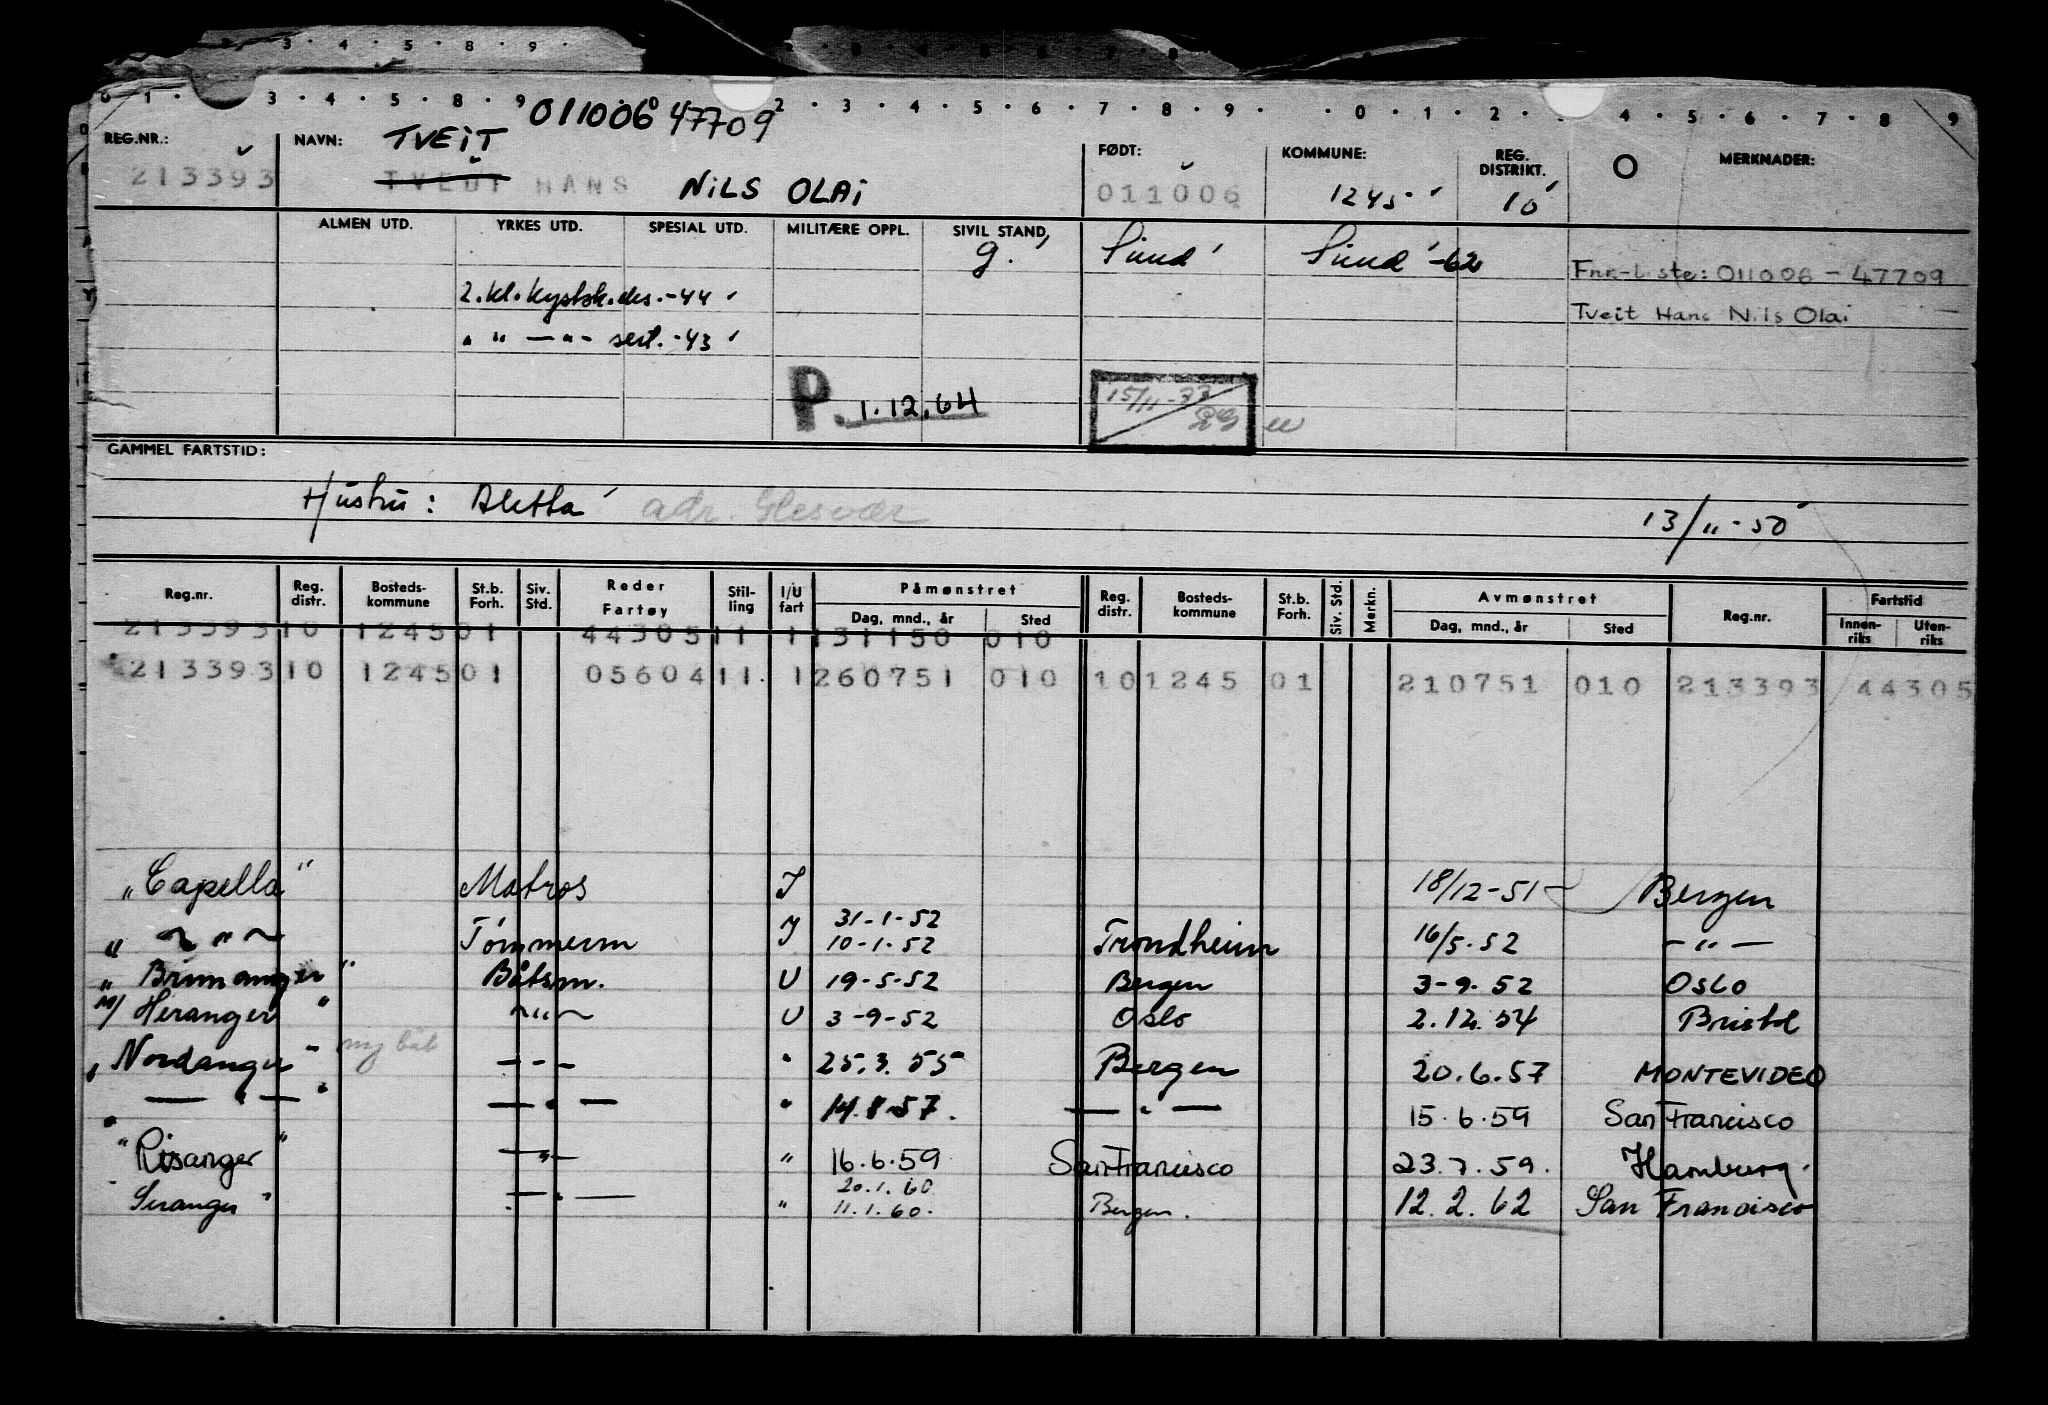 3 · 4 · 5 8 · 9 ·
0 1 · 3 · 4 · 5 · 8 · 9 2 · 3 · 4 · 5 · 6 · 7 · 8 · 9 · · 0 · 1 · 2 · 4 · 5 · 6 · 7 · 8 · 9
011006 47709
REG.NR.: NAVN: TVEIT FØDT: KOMMUNE: REG. DISTRIKT. O MERKNADER:
213393 TVEDT HANS NILS OLAI 011006 1245 10
ALMEN UTD. YRKES UTD. SPESIAL UTD. MILITÆRE OPPL. SIVIL STAND,
g. Sund Sund -62
Fnr-liste: 011006 - 47709
2.kl.kystsk.eks.-44
Tveit Hans Nils Olai
" " — " - sert. -43
P. 1.12.64 15/11-33
GAMMEL FARTSTID:
Hustru: Aletta adr. Glesvær 13/11-50
Reg.nr. Reg. distr. Bosteds-kommune St.b. Forh. Siv. Std. Reder Fartøy Stil-ling I/U fart Påmønstret Dag, mnd., år Sted Reg. distr. Bosteds-kommune St.b. Forh. Siv. Std. Merkn. Avmønstret Dag, mnd., år Sted Reg.nr. Fartstid Innen-riks Uten-riks
213393 10 1245 01 44305 11 1 131150 010
213393 10 1245 01 05604 11 1 260751 010 10 1245 01 210751 010 213393 44305
"Capella" Matros I 18/12-51 Bergen
31-1-52
" ~ " ~ Tømmerm I 10-1-52 Trondheim 16/5-52 — " —
"Brimanger" Båtsm. U 19-5-52 Bergen 3-9-52 Oslo
M/ Heranger " ~ " ~ U 3-9-52 Oslo 2.12.54 Bristol
"Nordanger" ny båt — - — " 25.3.55 Bergen 20.6.57 MONTEVIDEO
" — " — " — " — " 14.8.57. — " — 15.6.59 San Francisco
"Risanger" — " — " 16.6.59 San Francisco 23.7.59. Hamburg.
20.1.60
"Seranger" — " — " 11.1.60. Bergen. 12.2.62 San Francisco